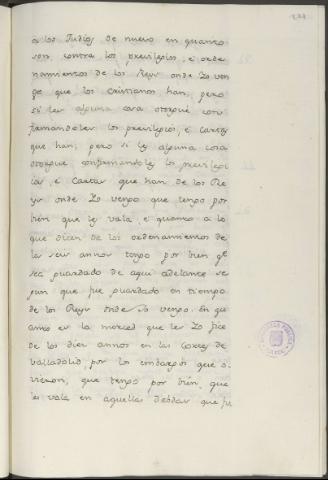 a los Judios de nuevo en quanto
son contra los previlegios, e orde
namientos de los Reys onde Yo ven
go que los cristianos han, pero
si les alguna cosa otorgué con
firmandoles los previlegios, e cartas
que han, pero si les alguna cosa
otorgue confirmandoles los previlegi
ios, e Cartas que han de los Re
ys onde Yo vengo que tengo por
bien que les vala. e quanto a lo
que dicen de los ordenamientos de
los seis annos tengo por bien qe
sea guardado de aqui adelante se
gun que fue guardado en tiempo
de los Reys onde Yo vengo. En qu
anto es la merced que les Yo fice
de los diez annos en las Cortes de
Valladolid, por los embargos que o
vieron, que tengo por bien, que
les vala en aquellas debdas que fu